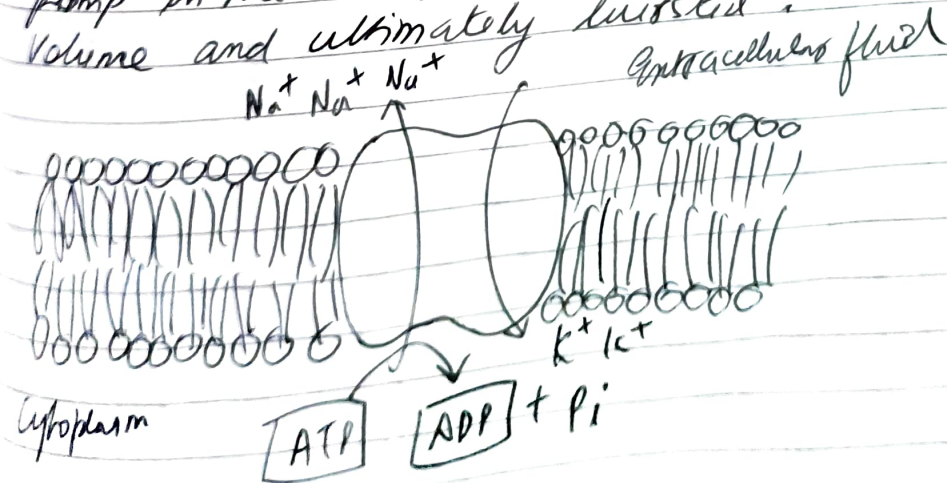 Volume and ultimately
Extracellular fluid
Na+ Na+ Na+
K+ K+
Cytoplasm
ATP ADP + Pi